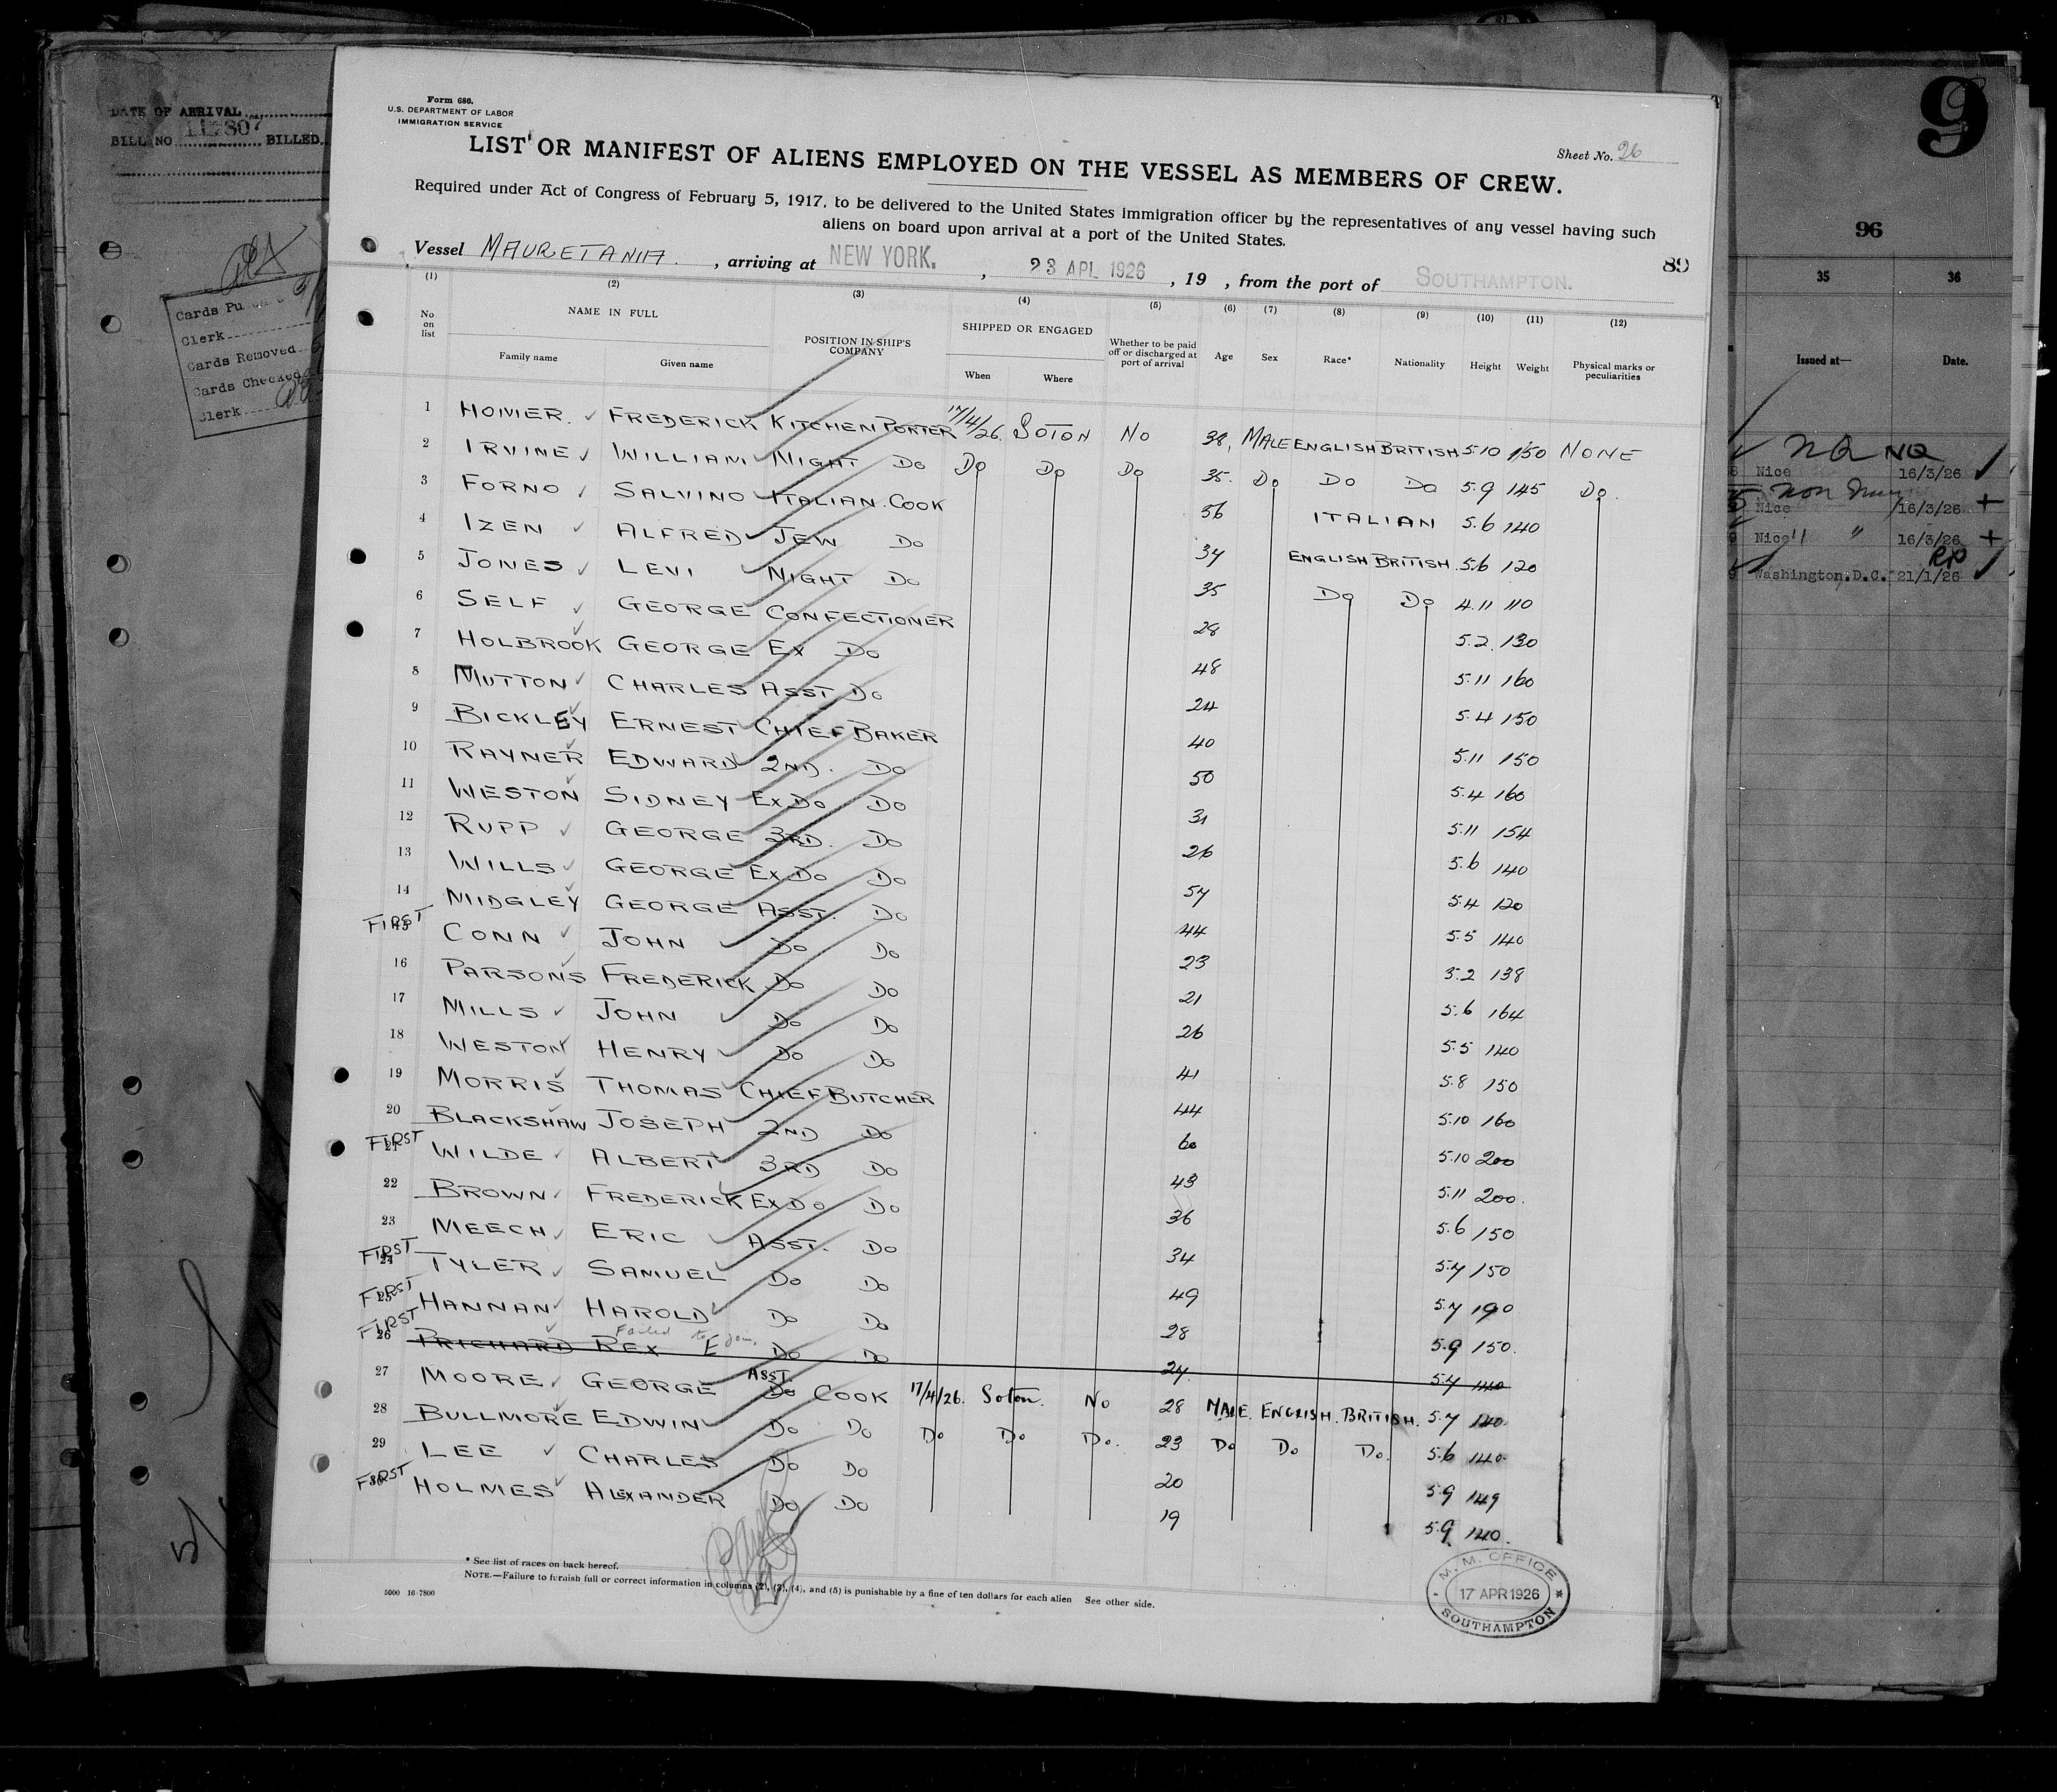 DATE OF ARRIVAL
BILL NO 11-807 BILLED
Cards Pu
Clerk
Cards Removed
Cards Checked
Clerk
Form 680.
U.S. DEPARTMENT OF LABOR
IMMIGRATION SERVICE
Sheet No. 26
LIST OR MANIFEST OF ALIENS EMPLOYED ON THE VESSEL AS MEMBERS OF CREW.
Required under Act of Congress of February 5, 1917, to be delivered to the United States immigration officer by the representatives of any vessel having such
aliens on board upon arrival at a port of the United States.
89
Vessel MAURETANIA , arriving at NEW YORK. , 23 APL 1926 , 19 , from the port of SOUTHAMPTON.
(1) (2) (3) (4) (5) (6) (7) (8) (9) (10) (11) (12)
No on list NAME IN FULL POSITION IN SHIP'S COMPANY SHIPPED OR ENGAGED Whether to be paid off or discharged at port of arrival Age Sex Race* Nationality Height Weight Physical marks or peculiarities
Family name Given name When Where
1 HOMER. FREDERICK KITCHEN PORTER 17/4/26 SOTON NO 38 MALE ENGLISH BRITISH 5.10 150 NONE
2 IRVINE WILLIAM NIGHT DO DO DO DO 35 DO DO DO 5.9 145 DO
3 FORNO SALVINO ITALIAN COOK 56 ITALIAN 5.6 140
4 IZEN ALFRED JEW DO 34 ENGLISH BRITISH 5.6 120
5 JONES LEVI NIGHT DO 35 DO DO 4.11 110
6 SELF GEORGE CONFECTIONER 28 5.2 130
7 HOLBROOK GEORGE EX DO 48 5.11 160
8 MUTTON CHARLES ASST DO 24 5.4 150
9 BICKLEY ERNEST CHIEF BAKER 40 5.11 150
10 RAYNER EDWARD 2ND. DO 50 5.4 160
11 WESTON SIDNEY EX DO DO 31 5.11 154
12 RUPP GEORGE 3RD. DO 26 5.6 140
13 WILLS GEORGE EX DO DO 57 5.4 120
14 MIDGLEY GEORGE ASST. DO 44 5.5 140
FIRST 15 CONN JOHN DO DO 23 5.2 138
16 PARSONS FREDERICK DO DO 21 5.6 164
17 MILLS JOHN DO DO 26 5.5 140
18 WESTON HENRY DO DO 41 5.8 150
19 MORRIS THOMAS CHIEF BUTCHER 44 5.10 160
20 BLACKSHAW JOSEPH 2ND DO 60 5.10 200
FIRST 21 WILDE ALBERT 3RD DO 43 5.11 200.
22 BROWN FREDERICK EX DO DO 36 5.6 150
23 MEECH ERIC ASST. DO 34 5.7 150
FIRST 24 TYLER SAMUEL DO DO 49 5.7 190
FIRST 25 HANNAN HAROLD DO DO 28 5.9 150.
Failed to join.
FIRST 26 PRICHARD REX E DO DO 27 5.7 140
27 MOORE GEORGE ASST DO COOK 17/4/26. Soton. NO 28 MALE. ENGLISH. BRITISH. 5.7 140
28 BULLMORE EDWIN DO DO DO DO DO. 23 DO DO DO. 5.6 140
29 LEE CHARLES DO DO 20 5.9 149
FIRST 30 HOLMES ALEXANDER DO DO 19 5.9 140.
* See list of races on back hereof.
NOTE.—Failure to furnish full or correct information in columns (2), (3), (4), and (5) is punishable by a fine of ten dollars for each alien See other side.
5000 16-7800
M.M. OFFICE
17 APR 1926
SOUTHAMPTON
9
96
35 36
Issued at— Date.
NQ NQ
Nice 16/3/26
Nice 16/3/26 +
Nice " " 16/3/26 +
Washington, D.C. 21/1/26